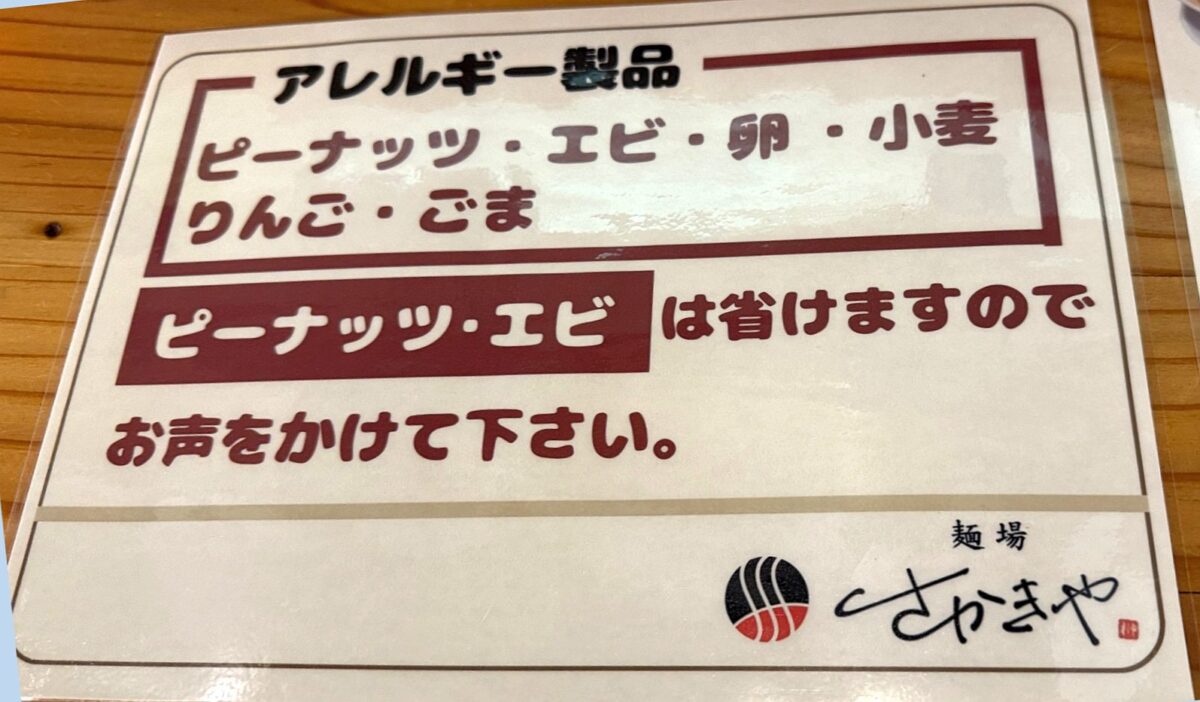 アレルギー製品
ピーナッツ・エビ・卵・小麦
りんご・ごま
ピーナッツ・エビは省けますので
お声をかけて下さい。
麺場
さかきや